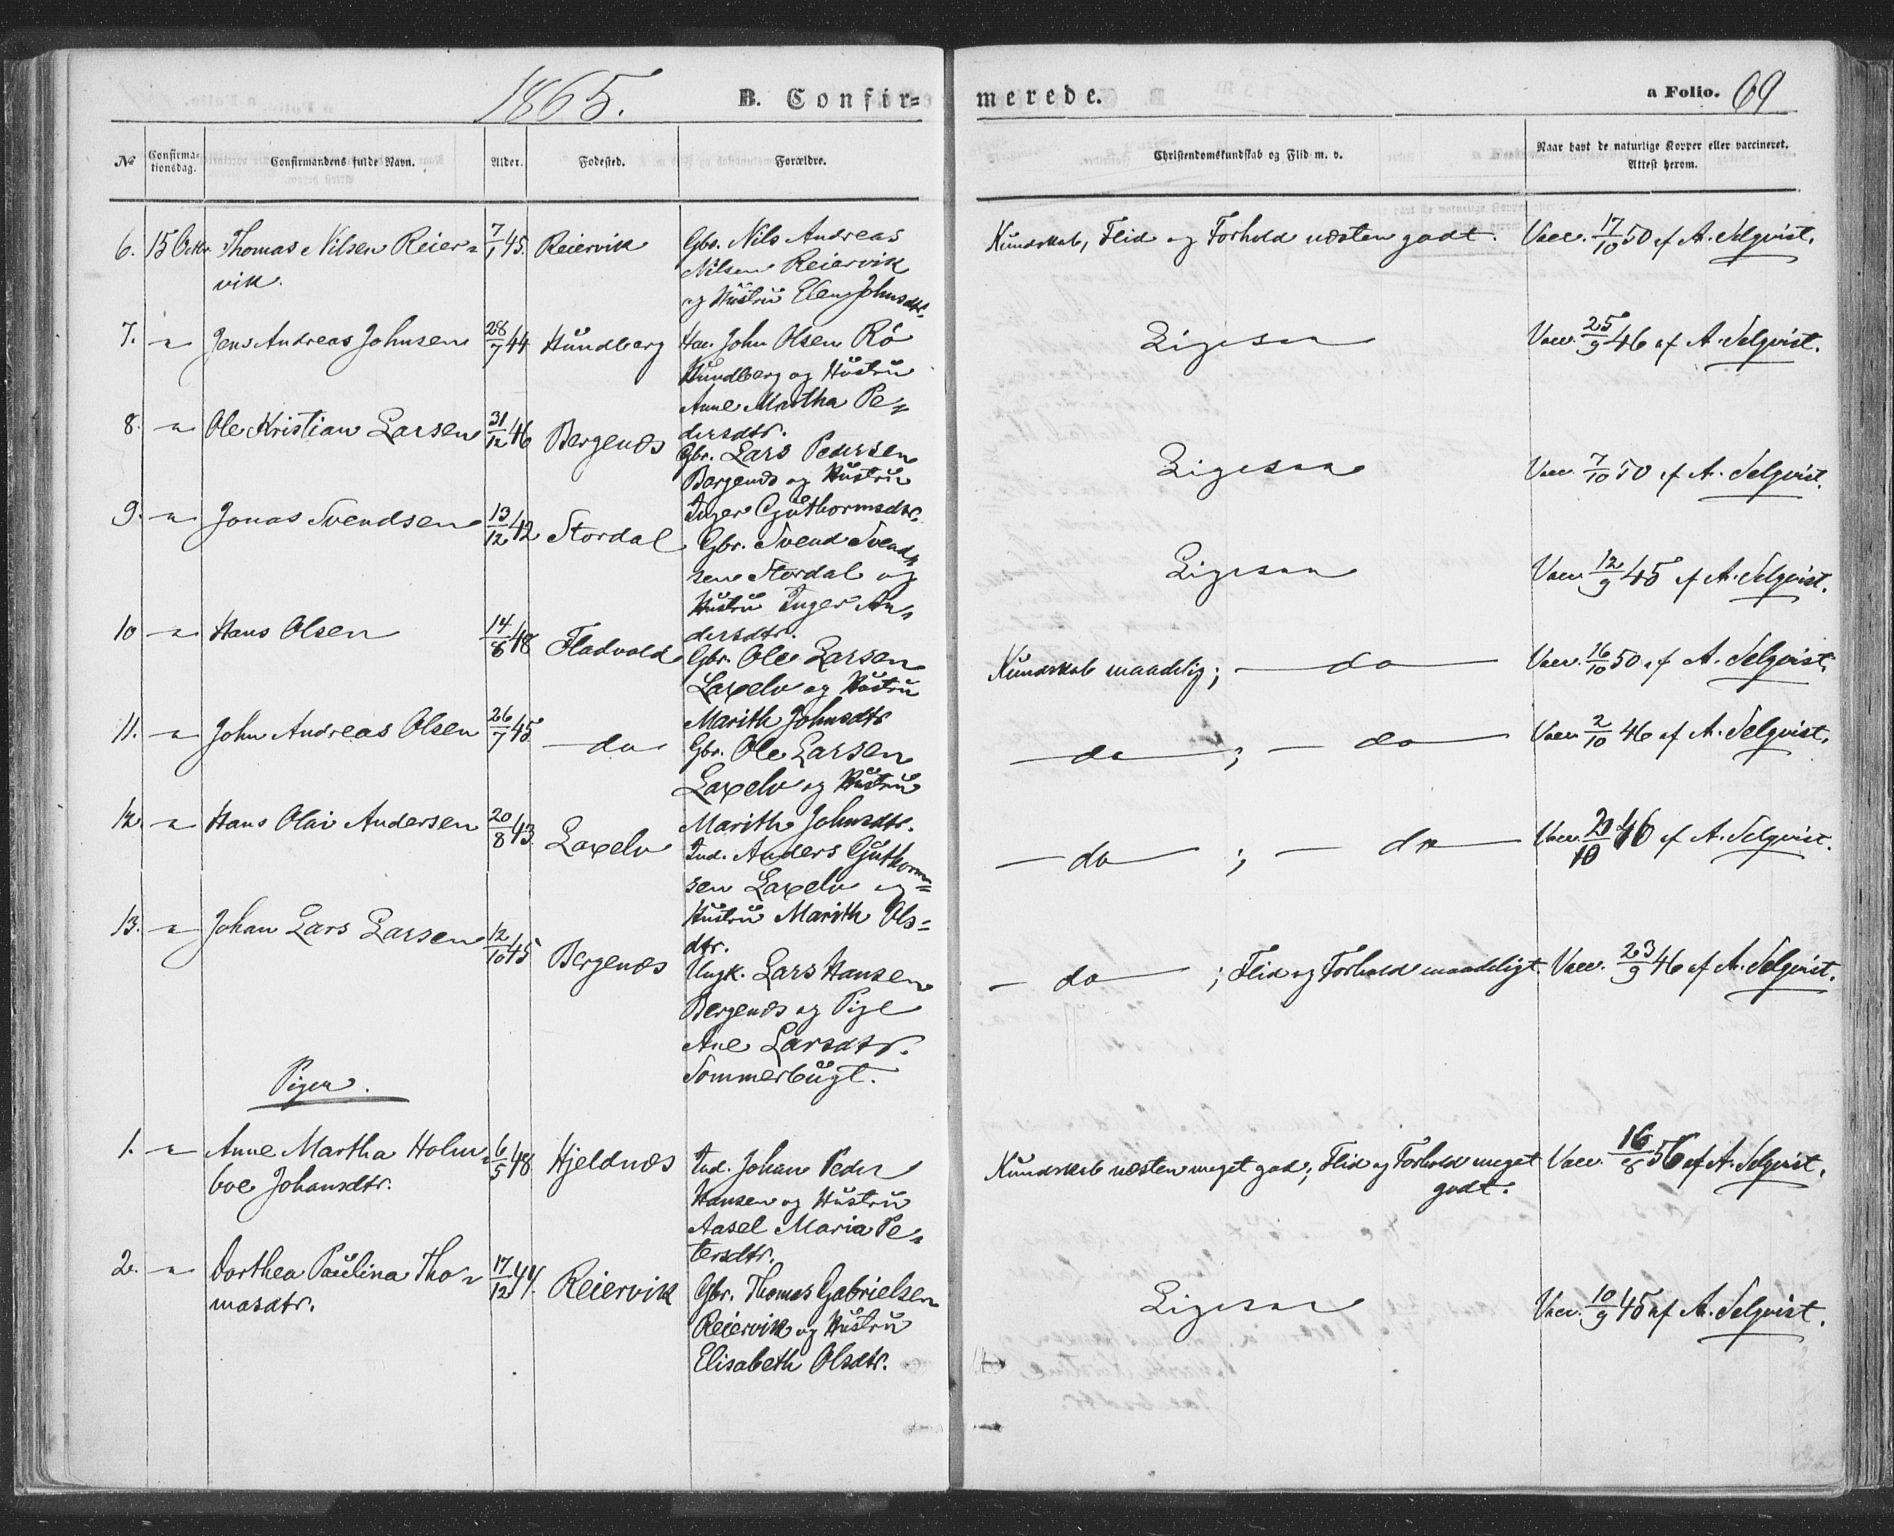 1865. B. Confir= merede. a Folio. 69
No Confirma-tionsdag. Confirmandens fulde Navn. Alder. Fødested. Forældre. Christendomskundskab og Flid m. v. Naar havt de naturlige Kopper eller vaccineret. Attest herom.
6. 15 Octbr Thomas Nilsen Reier= 7/1 45. Reiervik Gbr. Nils Andreas Kundskab, Flid og Forhold næsten godt. Vacc. 17/10 50 af A. Selqvist.
vik. Nilsen Reiervik
og Hustru Elen Johnsdtr.
7. " Jens Andreas Johnsen 28/7 44 Hundberg Hae. John Olsen Rö Ligesaa Vacc. 25/9 46 af A. Selqvist.
Hundberg og Hustru
Anne Martha Pe=
dersdtr.
8. " Ole Kristian Larsen 31/12 46 Bergenæs Gbr. Lars Pedersen Ligesaa Vacc. 7/10 50 af A. Selqvist.
Bergenæs og Hustru
Inger Guthormsdtr.
9. " Jonas Svendsen 13/12 42 Stordal Gbr. Svend Svend= Ligesaa Vacc. 12/9 45 af A. Selqvist.
sen Stordal og
Hustru Inger An=
dersdtr.
10 " Hans Olsen 14/8 48 Fladvold Gbr. Ole Larsen Kundskab maadelig; — do — Vacc. 16/10 50 af A. Selqvist.
Laxelv og Hustru
Marith Johnsdtr
11. " John Andreas Olsen 26/7 45 — do Gbr. Ole Larsen — do — ; — do — Vacc. 2/10 46 af A. Selqvist.
Laxelv og Hustru
Marith Johnsdtr.
12. " Hans Olai Andersen 20/8 43 Laxelv Ind. Anders Guthorm= — do — ; — do — Vacc. 2/10 46 af A. Selqvist.
sen Laxelv og
Hustru Marith Ols=
dtr.
13. " Johan Lars Larsen 12/10 45 Bergenæs Ungk. Lars Hansen — do — ; Flid og Forhold maadeligt Vacc. 23/9 46 af A. Selqvist.
Bergenæs og Pige
Ane Larsdtr.
Sommerbugt.
Piger.
1. " Anne Martha Holm= 6/5 48 Hjeldnæs Ind. Johan Peder Kundskab næsten meget god; Flid og Forhold meget Vacc. 16/8 56 af A. Selqvist.
boe Johansdtr. Hansen og Hustru godt.
Aasel Maria Pe=
tersdtr.
2. " Dorthea Paulina Tho= 17/12 44. Reiervik Gbr. Thomas Gabrielsen Ligesaa Vacc. 10/9 45 af A. Selqvist.
masdtr. Reiervik og Hustru
Elisabeth Olsdtr.